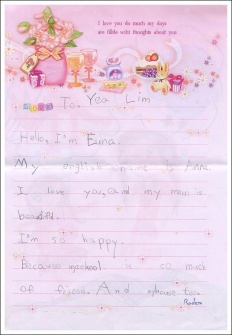 I love you do much my days
are fillde wiht thoughts about you
To. Yea Lim
Hello, I'm Euna.
My english name is Anne
I love you, and my mom is
beautiful.
I'm so happy.
Because myschool is so much
of friend. And